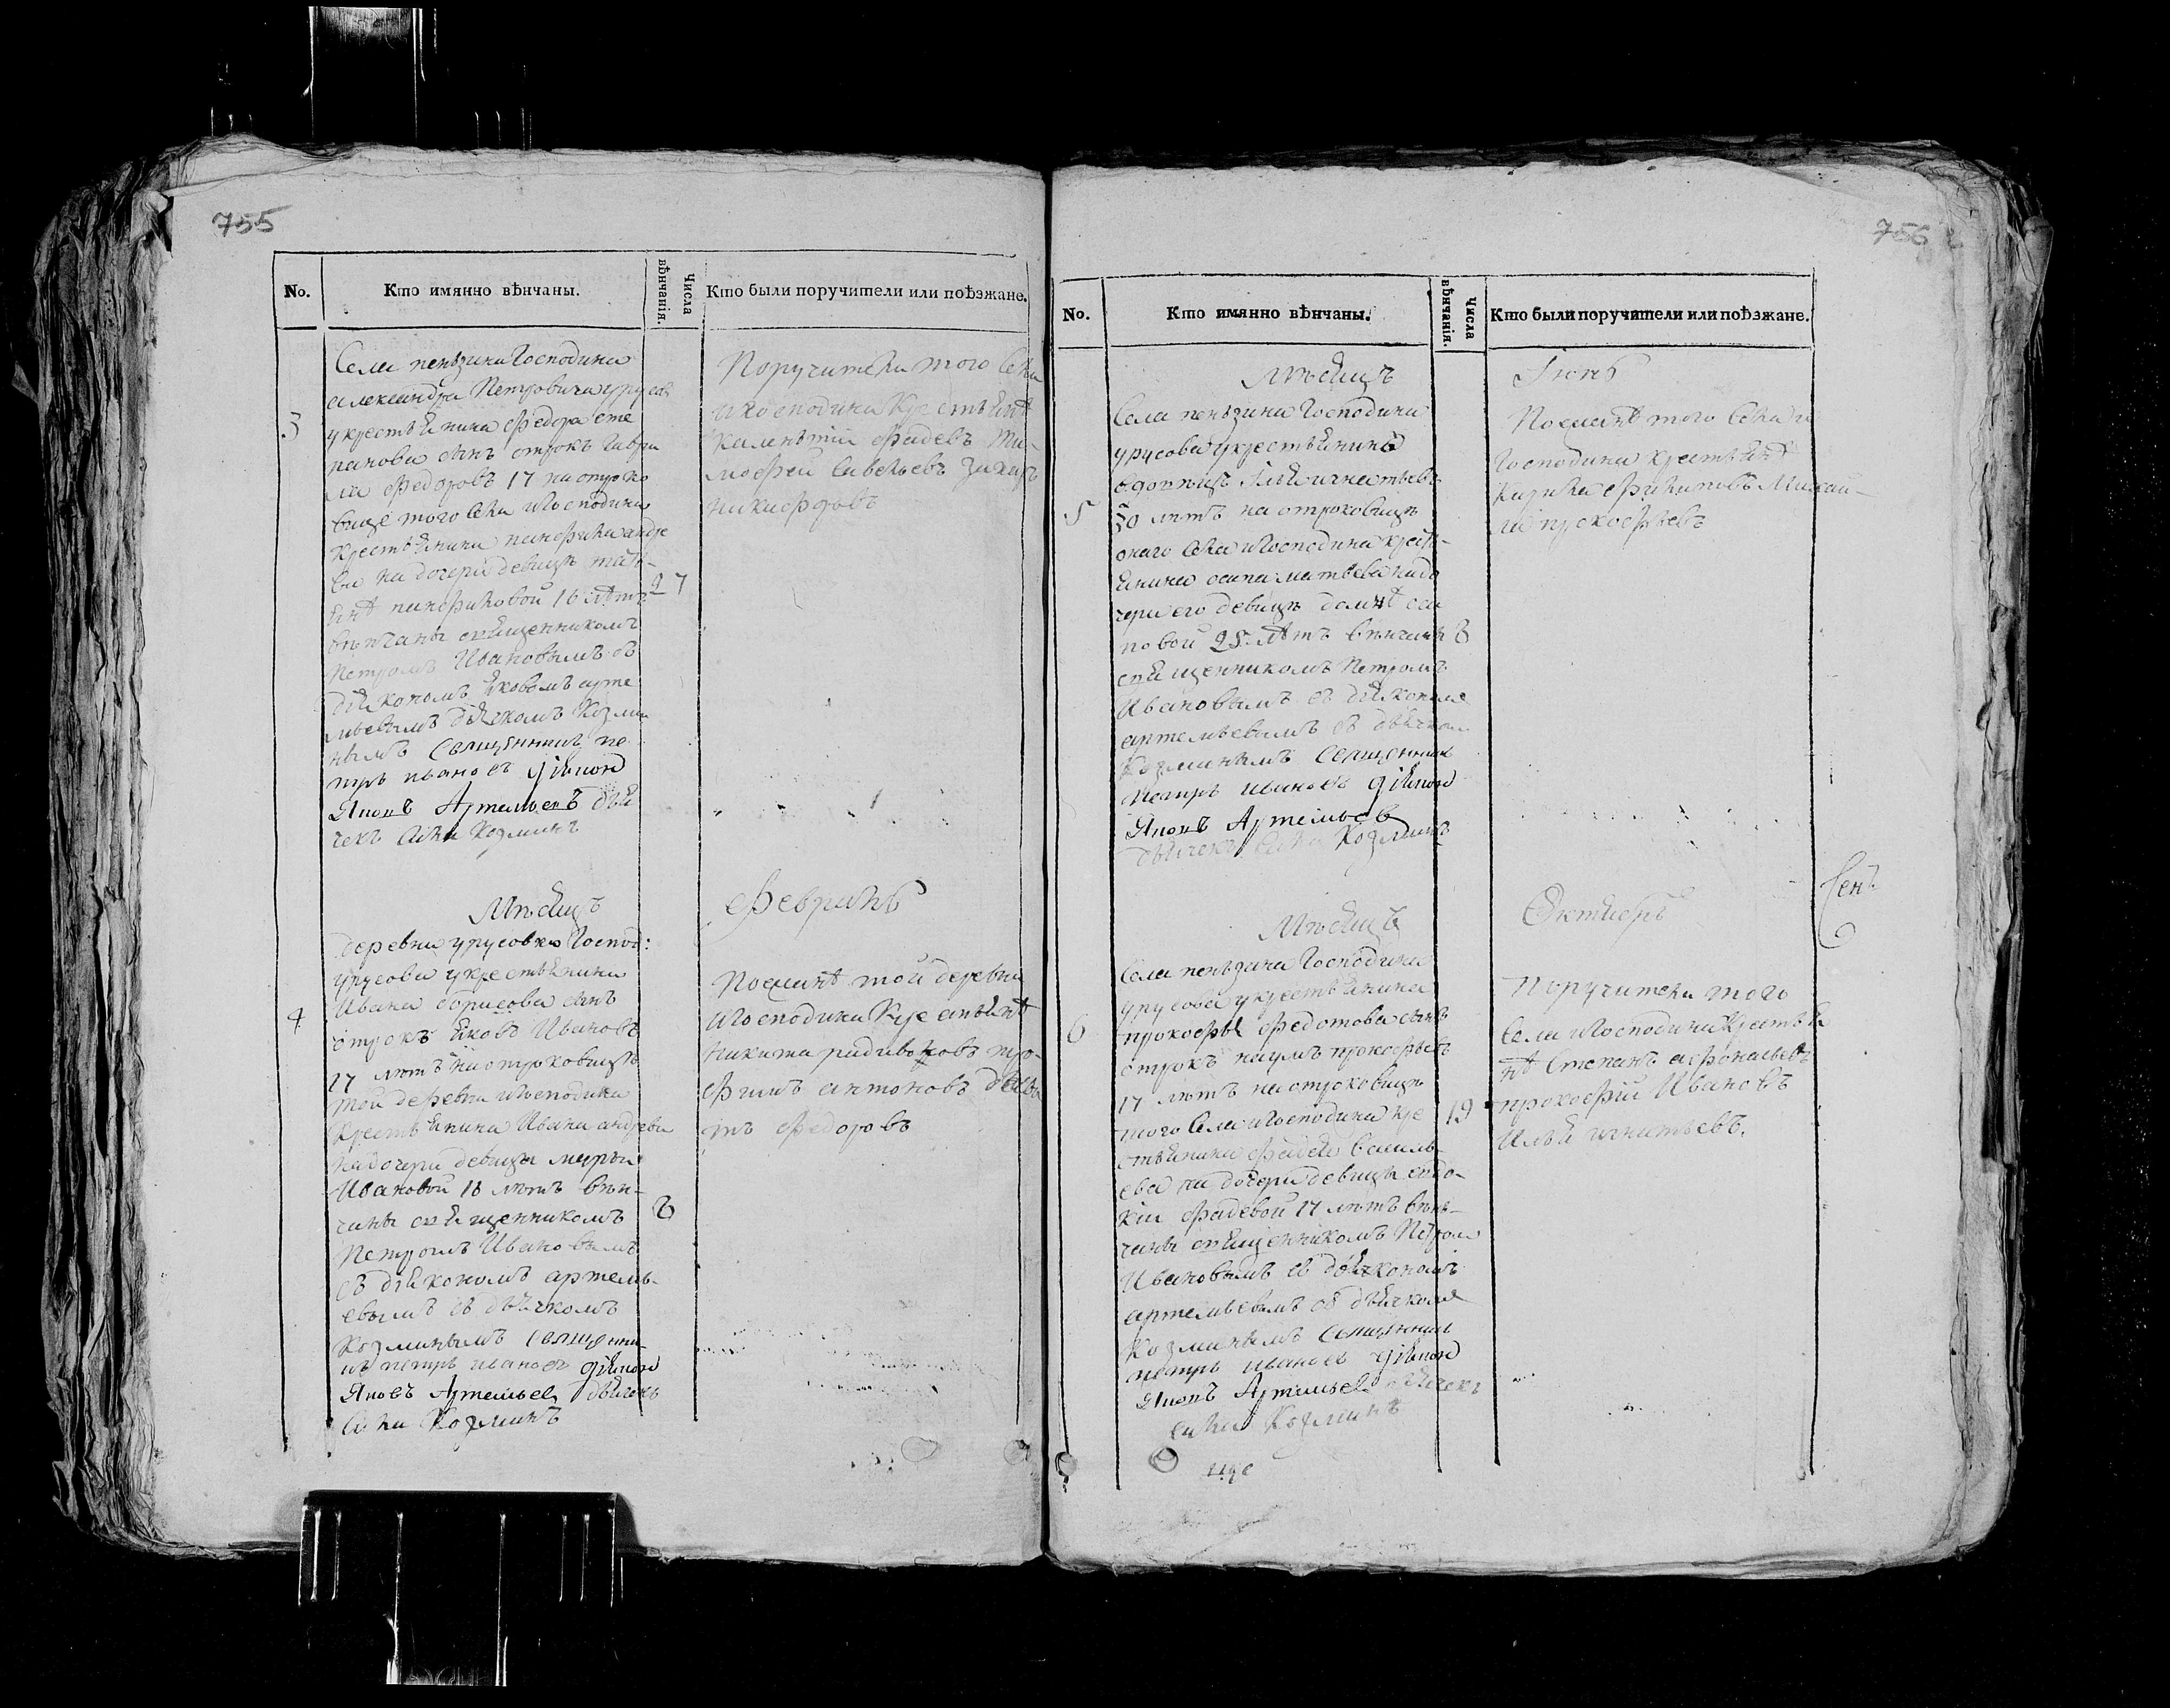 755
No.
Кто имянно вѣнчаны.
Числа вѣнчанія.
Кто были поручители или поѣзжане.
3
Села пензина Господина
александра Петровича урусов
укрестьянина федора сте
панова сынъ отрокъ гаври
ла федоровъ 17 на отроко
вице того села игосподина
крестьянина панфила андре
ева на дочери девицѣ
панфиловой 16 лѣтъ
27
вѣнчаны священникомъ
Петромъ Ивановымъ съ
діякономъ яковомъ арте
мьевымъ дьячкомъ Козми
нымъ Священникъ пе
тръ ивановъ діяконъ
Яковъ Артемьевъ дья
чекъ сила Козминъ
Поручители того села
игосподина крестьянѣ
фадеевъ Ти-
мофей савельевъ захаръ
никифоровъ
Мѣсяцъ
февраль
4
деревни урусовки Господ:
урусова укрестьянина
Ивана борисова сынъ
отрокъ яковъ Ивановъ
17 лѣтъ на отроковицѣ
той деревни игосподина
крестьянина Ивана андреева
на дочери девицы марьи
Ивановой 18 лѣтъ вѣн-
чаны священникомъ
8
Петромъ Ивановымъ
съ діякономъ артемь-
евымъ съ дьячкомъ
Козминымъ священни
къ петръ ивановъ діяконъ
Яковъ Артемьевъ дьячекъ
сила Козминъ
Поезжанѣ той деревни
игосподина крестьянѣ
никита радивоновъ тро-
фимъ антоновъ
федоровъ
756
No.
Кто имянно вѣнчаны.
Числа вѣнчанія.
Кто были поручители или поѣзжане.
Мѣсяцъ
Іюнь
5
Села пензина Господина
урусова укрестьянина
вдовецъ Илья игнатьевъ
30 лѣтъ на отроковицѣ
онаго села игосподина крест-
янина осипа матвеева надо
чери его девицѣ домнѣ оси
повой 25 лѣтъ вѣнчаны
8
священникомъ Петромъ
Ивановымъ съ діякономъ
артемьевымъ съ дьячком
Козминымъ Священникъ
Петръ ивановъ діяконъ
Яковъ Артемьевъ
дьячекъ сила Козминъ
Поезжанѣ того села и
господина крестьянѣ
филиповъ Михай-
ла прокофьевъ
Сен:
Мѣсяцъ
Октябрь
6
Села пензина Господина
урусова укрестьянина
прокофья федотова сынъ
отрокъ наумъ прокофьевъ
17 лѣтъ на отроковицѣ
того села игосподина кре
19
стьянина фадея василь-
ева на дочери девицы евдо-
кіи фадевой 17 лѣтъ вѣн-
чаны священникомъ Петром
Ивановымъ съ діякономъ
артемьевымъ съ дьячкомъ
Козминымъ Священникъ
петръ ивановъ діяконъ
Яковъ Артемьевъ дьячекъ
сила Козминъ
Поручители того
села игосподина крестья
нѣ Степанъ афонасьевъ
прокофій Ивановъ
Илья игнатьевъ.